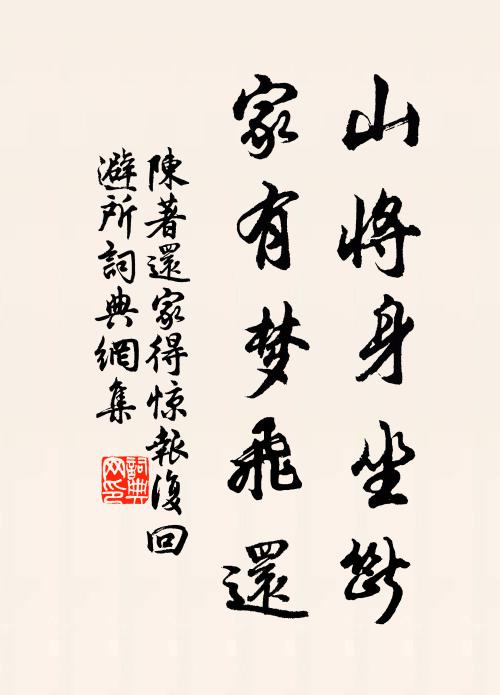 山将身坐断
家有梦飛還
陳著還家得惊報復回
避所詞典網集
詞典
网印